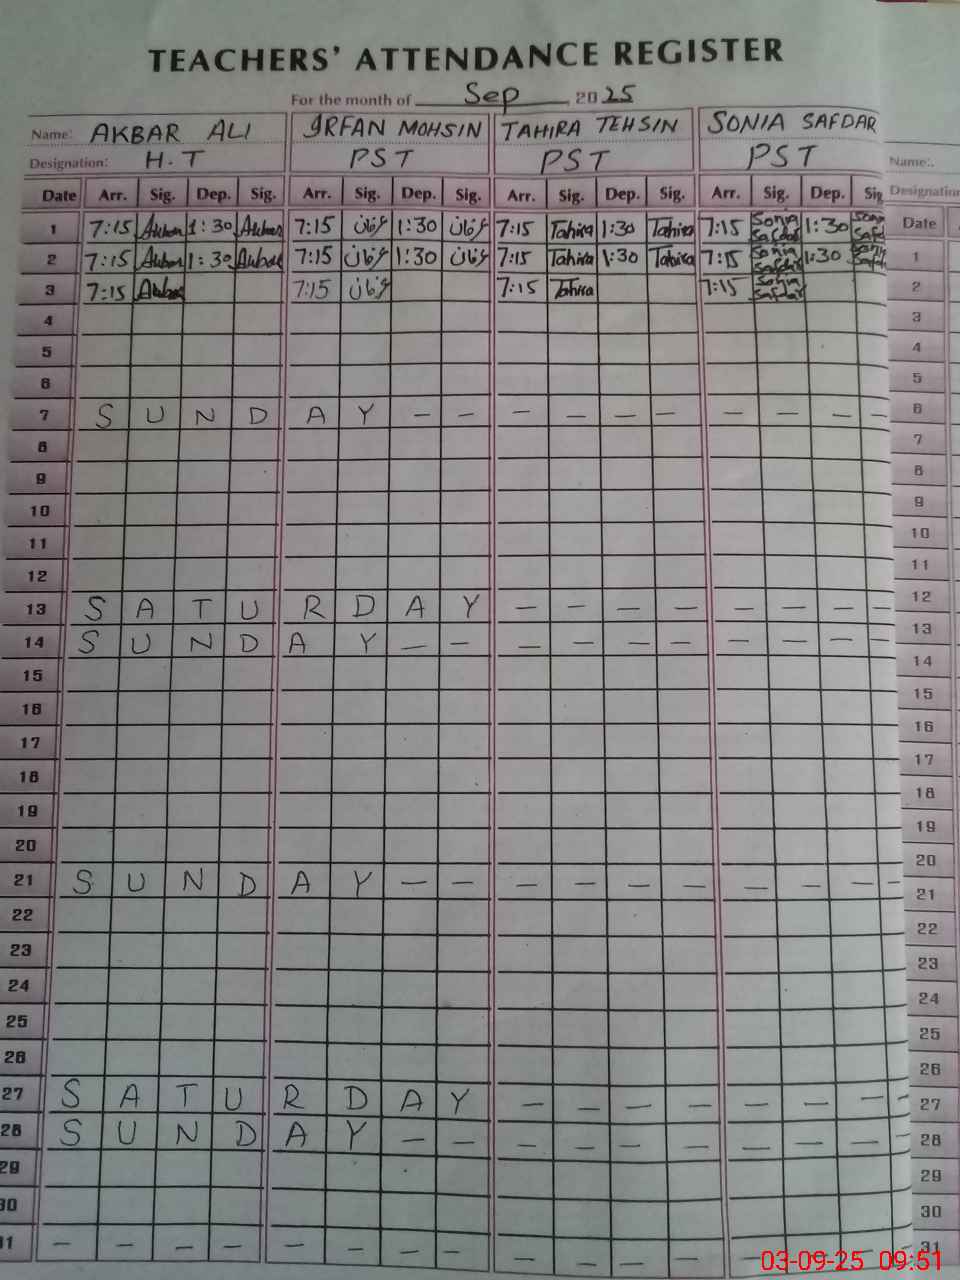 TEACHERS' ATTENDANCE REGISTER
For the month of Sep 2025
Name: AKBAR ALI IRFAN MOHSIN TAHIRA TEHSIN SONIA SAFDAR Name:
Designation: H.T PST PST PST Designation
Date Arr. Sig. Dep. Sig. Arr. Sig. Dep. Sig. Arr. Sig. Dep. Sig. Arr. Sig. Dep. Sig Date
1 7:15 Akbar 1:30 Akbar 7:15 1:30 7:15 Tahira 1:30 Tahira 7:15 Sonia Safdar 1:30 1
2 7:15 Akbar 1:30 Akbar 7:15 1:30 7:15 Tahira 1:30 Tahira 7:15 Sonia Safdar 1:30 2
3 7:15 Akbar 7:15 7:15 Tahira 7:15 Sonia Safdar 3
4 4
5 5
6 6
7 S U N D A Y — — — — — — — — — — 7
8 8
9 9
10 10
11 11
12 12
13 S A T U R D A Y — — — — — — — — 13
14 S U N D A Y — — — — — — — — — — 14
15 15
16 16
17 17
18 18
19 19
20 20
21 S U N D A Y — — — — — — — — — — 21
22 22
23 23
24 24
25 25
26 26
27 S A T U R D A Y — — — — — — — — 27
28 S U N D A Y — — — — — — — — — — 28
29 29
30 30
31 — — — — — — — — — — — — — — 31
03-09-25 09:51